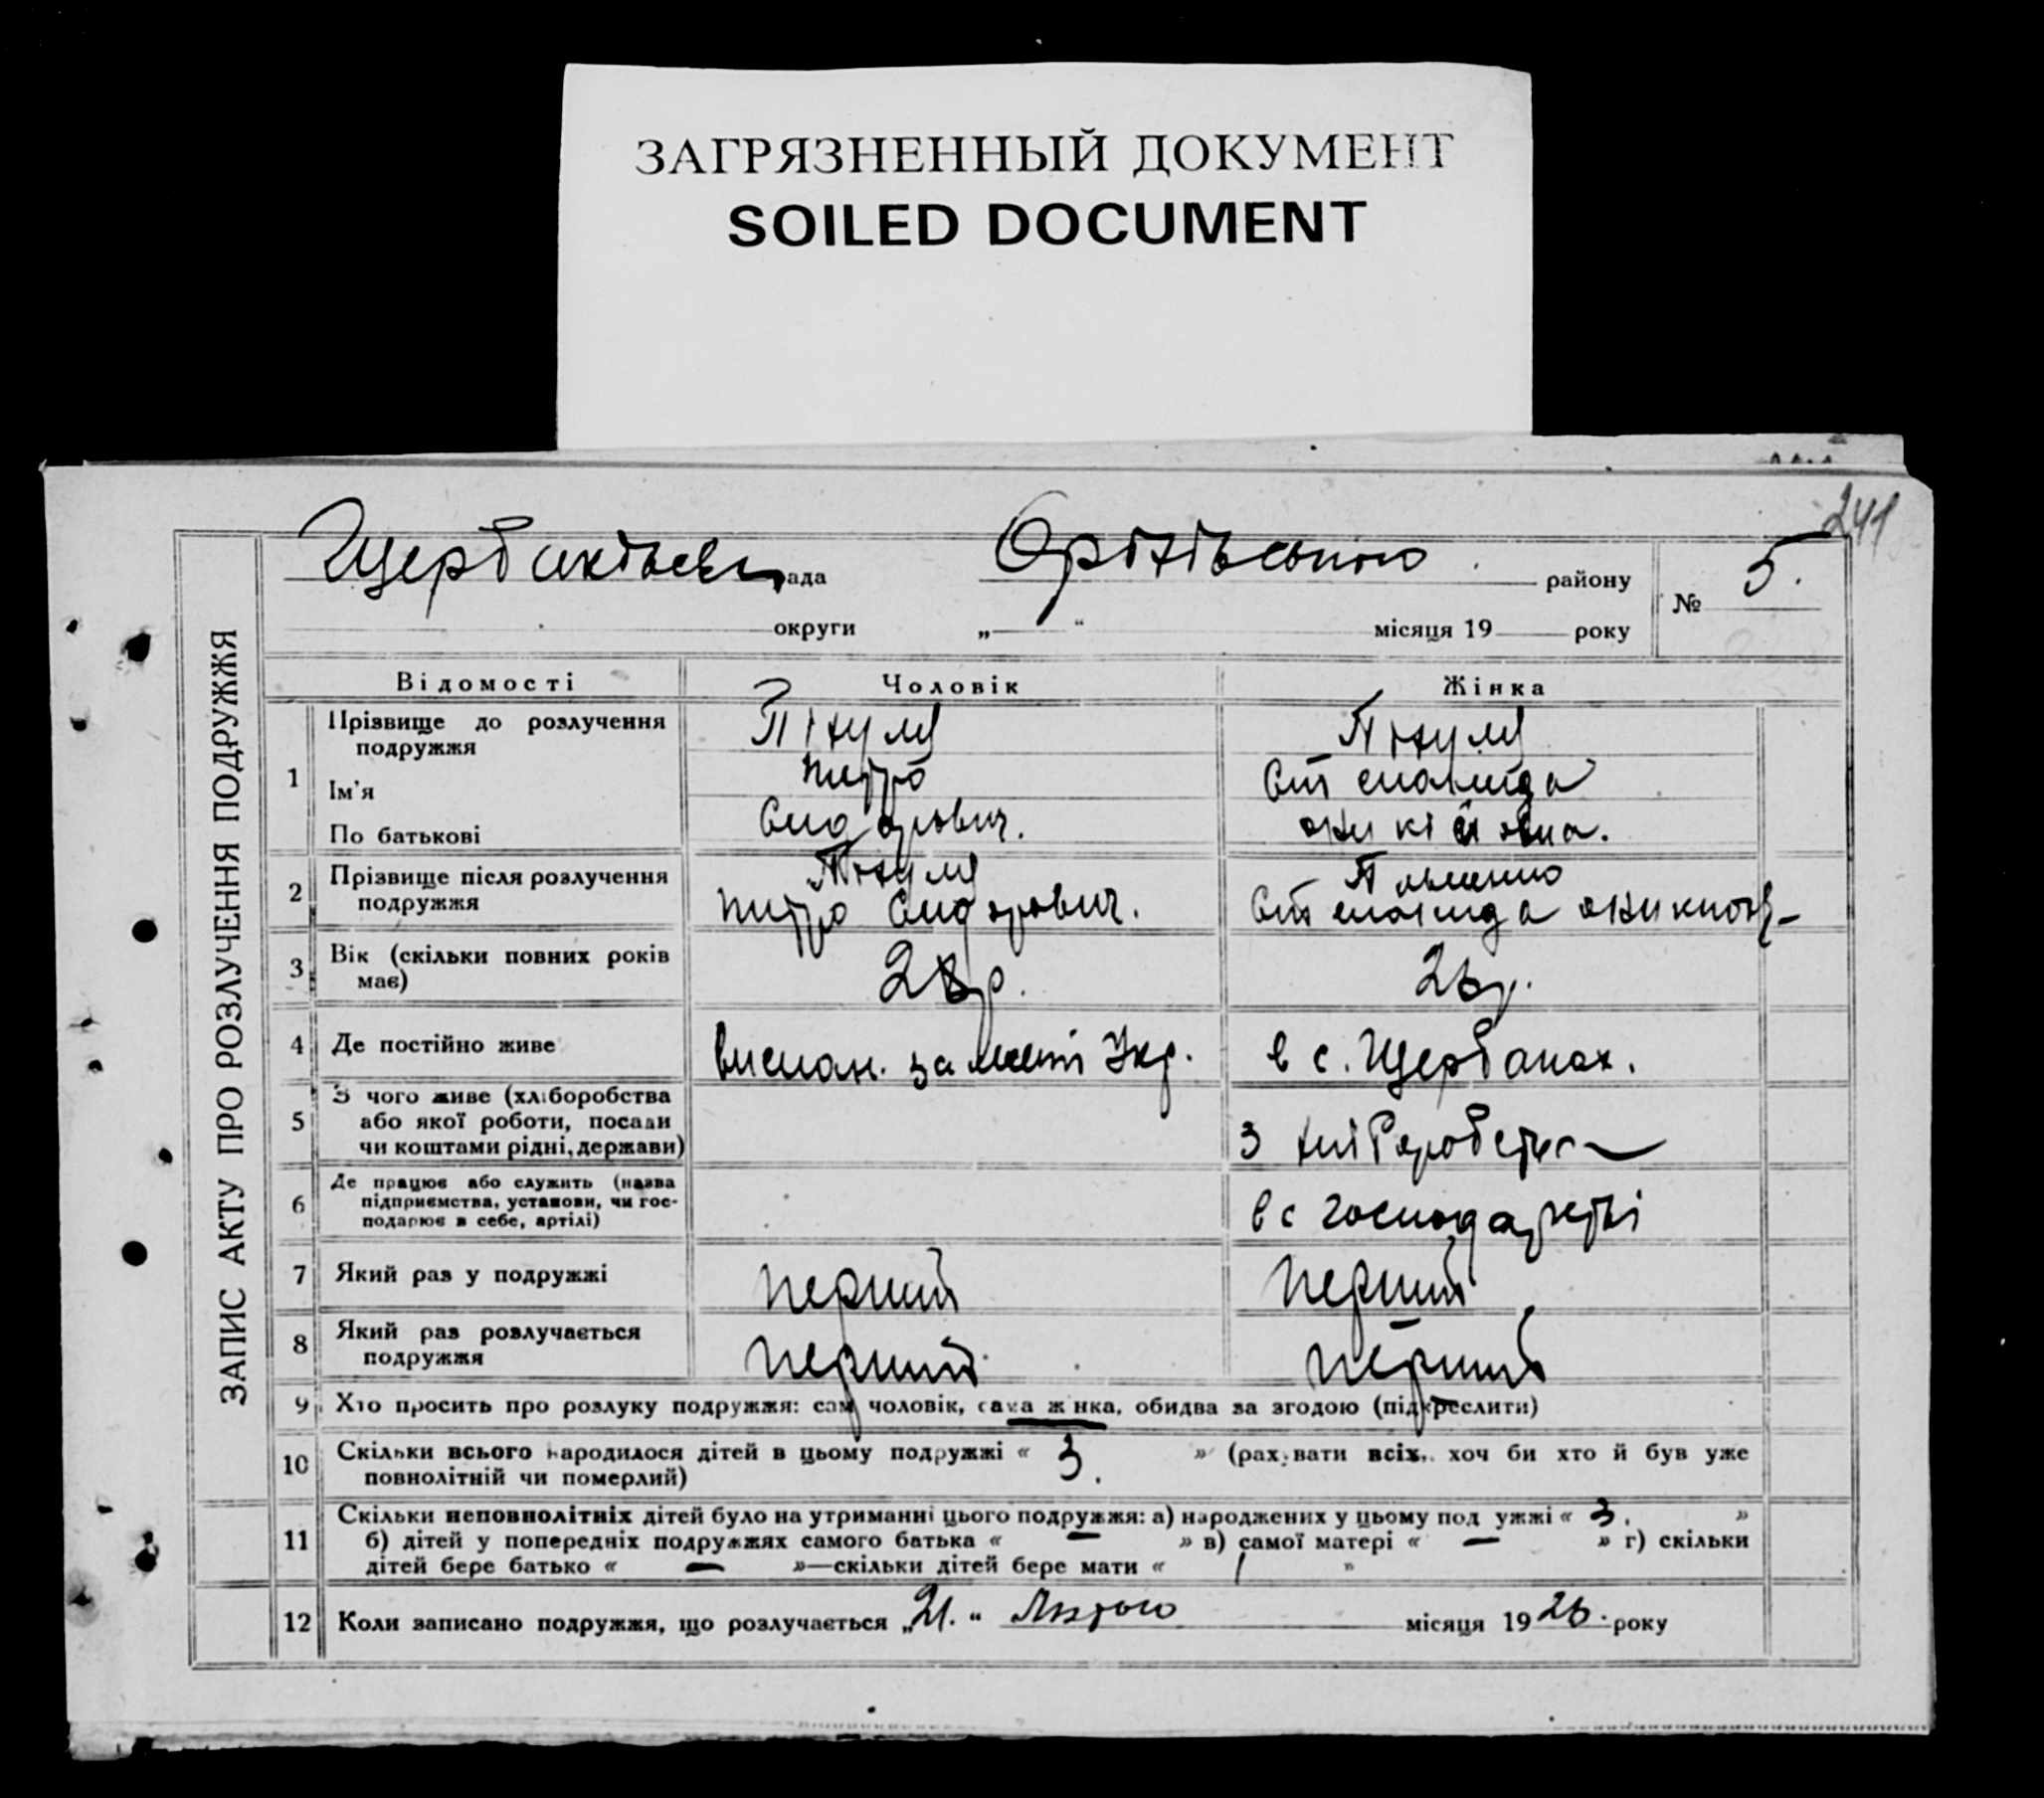 ЗАГРЯЗНЕННЫЙ ДОКУМЕНТ
SOILED DOCUMENT
241
ЗАПИС АКТУ ПРО РОЗЛУЧЕННЯ ПОДРУЖЖЯ
рада району № 5.
округи „ “ місяця 19 року
Відомості Чоловік Жінка
1 Прізвище до розлучення подружжя
Ім'я Петро
По батькові Сидорович.
2 Прізвище після розлучення
подружжя Петро Сидорович.
3 Вік (скільки повних років
має) 26р.
4 Де постійно живе вислан. за межі Укр. в с. Щербанах.
5 З чого живе (хліборобства
або якої роботи, посади
чи коштами рідні, держави) з
6 Де працює або служить (назва
підприємства, установи, чи гос-
подарює в себе, артілі) в с господарстві
7 Який раз у подружжі перший перший
8 Який раз розлучається
подружжя перший перший
9 Хто просить про розлуку подружжя: сам чоловік, сама жінка, обидва за згодою (підкреслити)
10 Скільки всього народилося дітей в цьому подружжі « 3. » (рахувати всіх, хоч би хто й був уже
повнолітній чи померлий)
11 Скільки неповнолітніх дітей було на утриманні цього подружжя: а) народжених у цьому подружжі « 3. »
б) дітей у попередніх подружжях самого батька « — » в) самої матері « — » г) скільки
дітей бере батько « — »—скільки дітей бере мати « »
12 Коли записано подружжя, що розлучається „21.“ Лютого місяця 1926. року